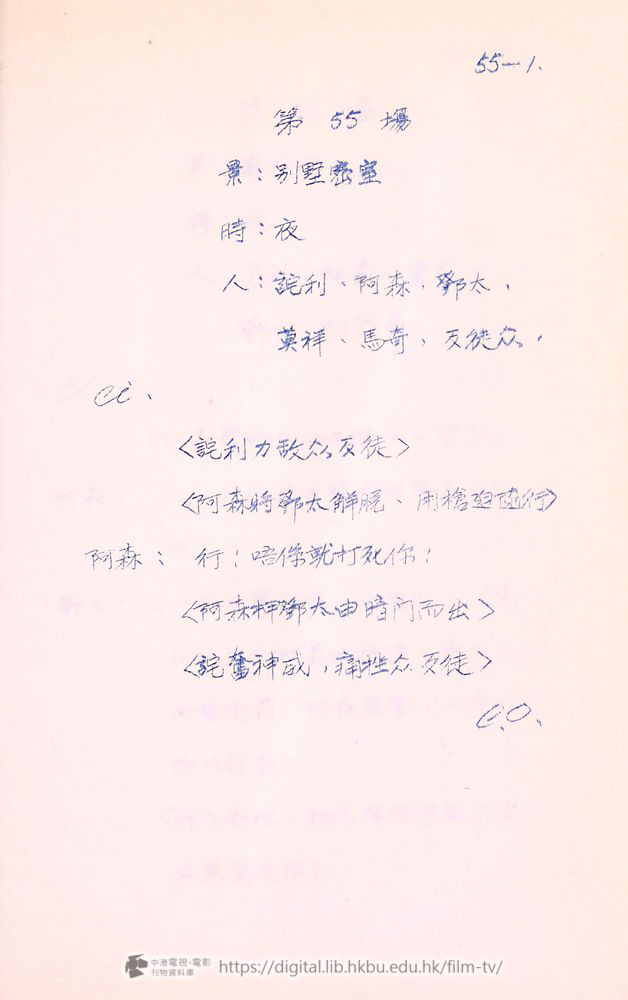 55—1.
第 55 場
景：別墅密室
時：夜
人：詫利、阿森、鄧太、
莫祥、馬奇、歹徒众。
Ci、
〈詫利力敌众歹徒〉
〈阿森將鄧太解脱、用槍迫随行〉
阿森：行！唔係就打死你！
〈阿森押鄧太由暗门而出〉
〈詫奮神威，痛挫众歹徒〉
C.O.
中港電視·電影
刊物資料庫
https://digital.lib.hkbu.edu.hk/film-tv/